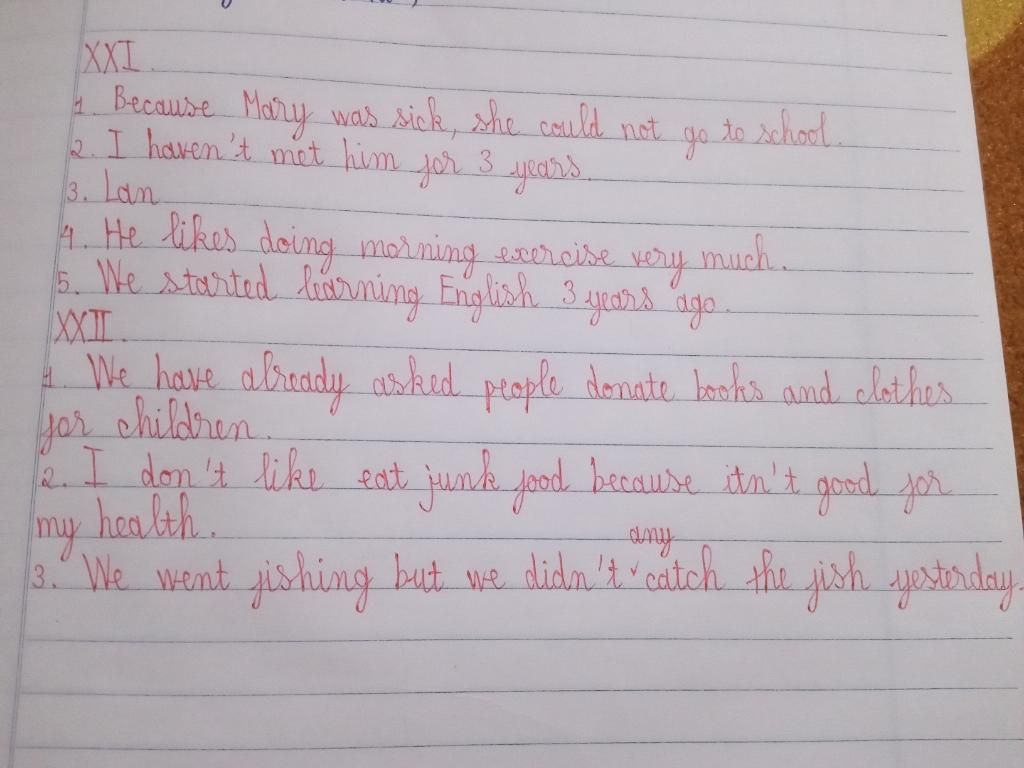 XXI.
1. Because Mary was sick, she could not go to school.
2. I haven't met him for 3 years.
3. Lan
4. He likes doing morning exercise very much.
5. We started learning English 3 years ago.
XXII.
1. We have already asked people donate books and clothes
for children.
2. I don't like eat junk food because itn't good for
my health.
any
3. We went fishing but we didn't ˅ catch the fish yesterday.